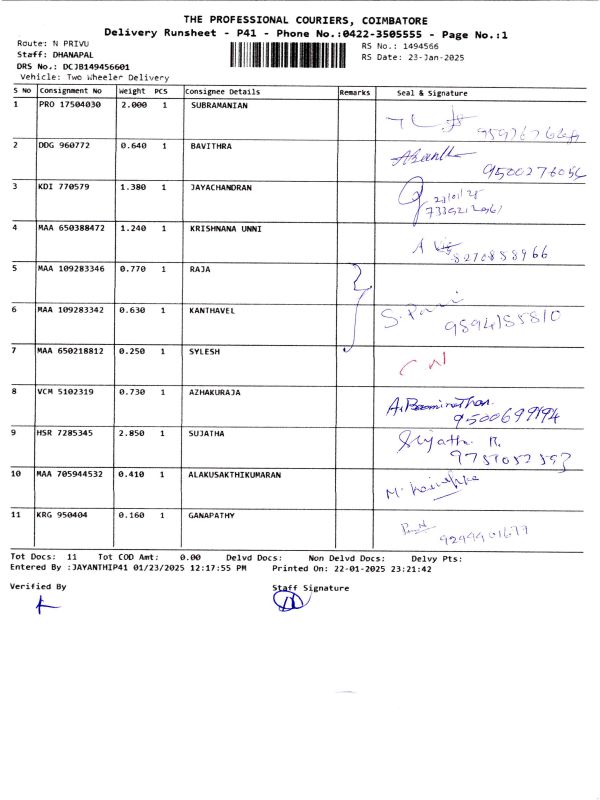 THE PROFESSIONAL COURIERS, COIMBATORE
Delivery Runsheet - P41 - Phone No.:0422-3505555 - Page No.:1
Route: N PRIVU
RS No.: 1494566
Staff: DHANAPAL
RS Date: 23-Jan-2025
DRS No.: DCJB149456601
Vehicle: Two Wheeler Delivery
S No Consignment No Weight PCS Consignee Details Remarks Seal & Signature
1 PRO 17504030 2.000 1 SUBRAMANIAN
2 DDG 960772 0.640 1 BAVITHRA
9500276054
3 KDI 770579 1.380 1 JAYACHANDRAN
23/01/25
4 MAA 650388472 1.240 1 KRISHNANA UNNI
8270858966
5 MAA 109283346 0.770 1 RAJA
6 MAA 109283342 0.630 1 KANTHAVEL
9594185810
7 MAA 650218812 0.250 1 SYLESH
8 VCM 5102319 0.730 1 AZHAKURAJA
9500699194
9 HSR 7285345 2.850 1 SUJATHA Sujatha R.
10 MAA 705944532 0.410 1 ALAKUSAKTHIKUMARAN
11 KRG 950404 0.160 1 GANAPATHY
Tot Docs: 11 Tot COD Amt: 0.00 Delvd Docs: Non Delvd Docs: Delvy Pts:
Entered By :JAYANTHIP41 01/23/2025 12:17:55 PM Printed On: 22-01-2025 23:21:42
Verified By Staff Signature